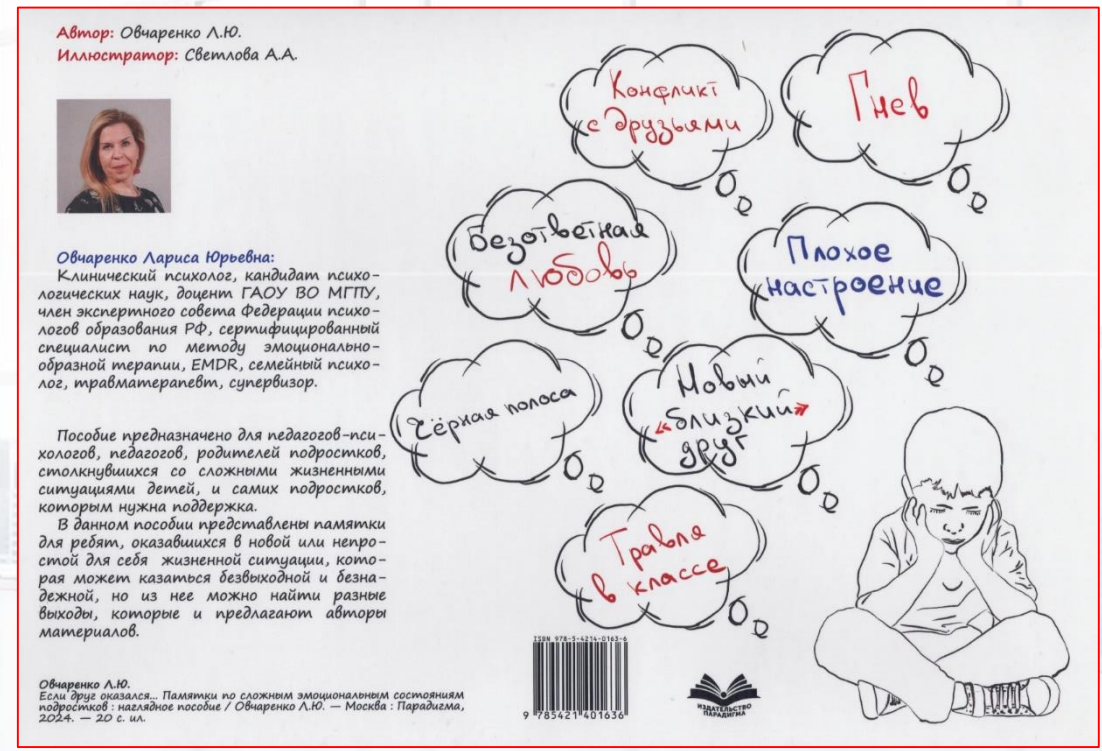 Автор: Овчаренко Л.Ю.
Иллюстратор: Светлова А.А.
Овчаренко Лариса Юрьевна:
Клинический психолог, кандидат психо-
логических наук, доцент ГАОУ ВО МГПУ,
член экспертного совета Федерации психо-
логов образования РФ, сертифицированный
специалист по методу эмоционально-
образной терапии, EMDR, семейный психо-
лог, травматерапевт, супервизор.
Пособие предназначено для педагогов-пси-
хологов, педагогов, родителей подростков,
столкнувшихся со сложными жизненными
ситуациями детей, и самих подростков,
которым нужна поддержка.
В данном пособии представлены памятки
для ребят, оказавшихся в новой или непро-
стой для себя жизненной ситуации, кото-
рая может казаться безвыходной и безна-
дежной, но из нее можно найти разные
выходы, которые и предлагают авторы
материалов.
Овчаренко Л.Ю.
Если друг оказался... Памятки по сложным эмоциональным состояниям
подростков : наглядное пособие / Овчаренко Л.Ю. — Москва : Парадигма,
2024. — 20 с. ил.
Конфликт
с друзьями
Гнев
Безответная
любовь
Плохое
настроение
Чёрная полоса
Новый
«близкий»
друг
Травля
в классе
ISBN 978-5-4214-0163-6
9 785421 401636
ИЗДАТЕЛЬСТВО
ПАРАДИГМА